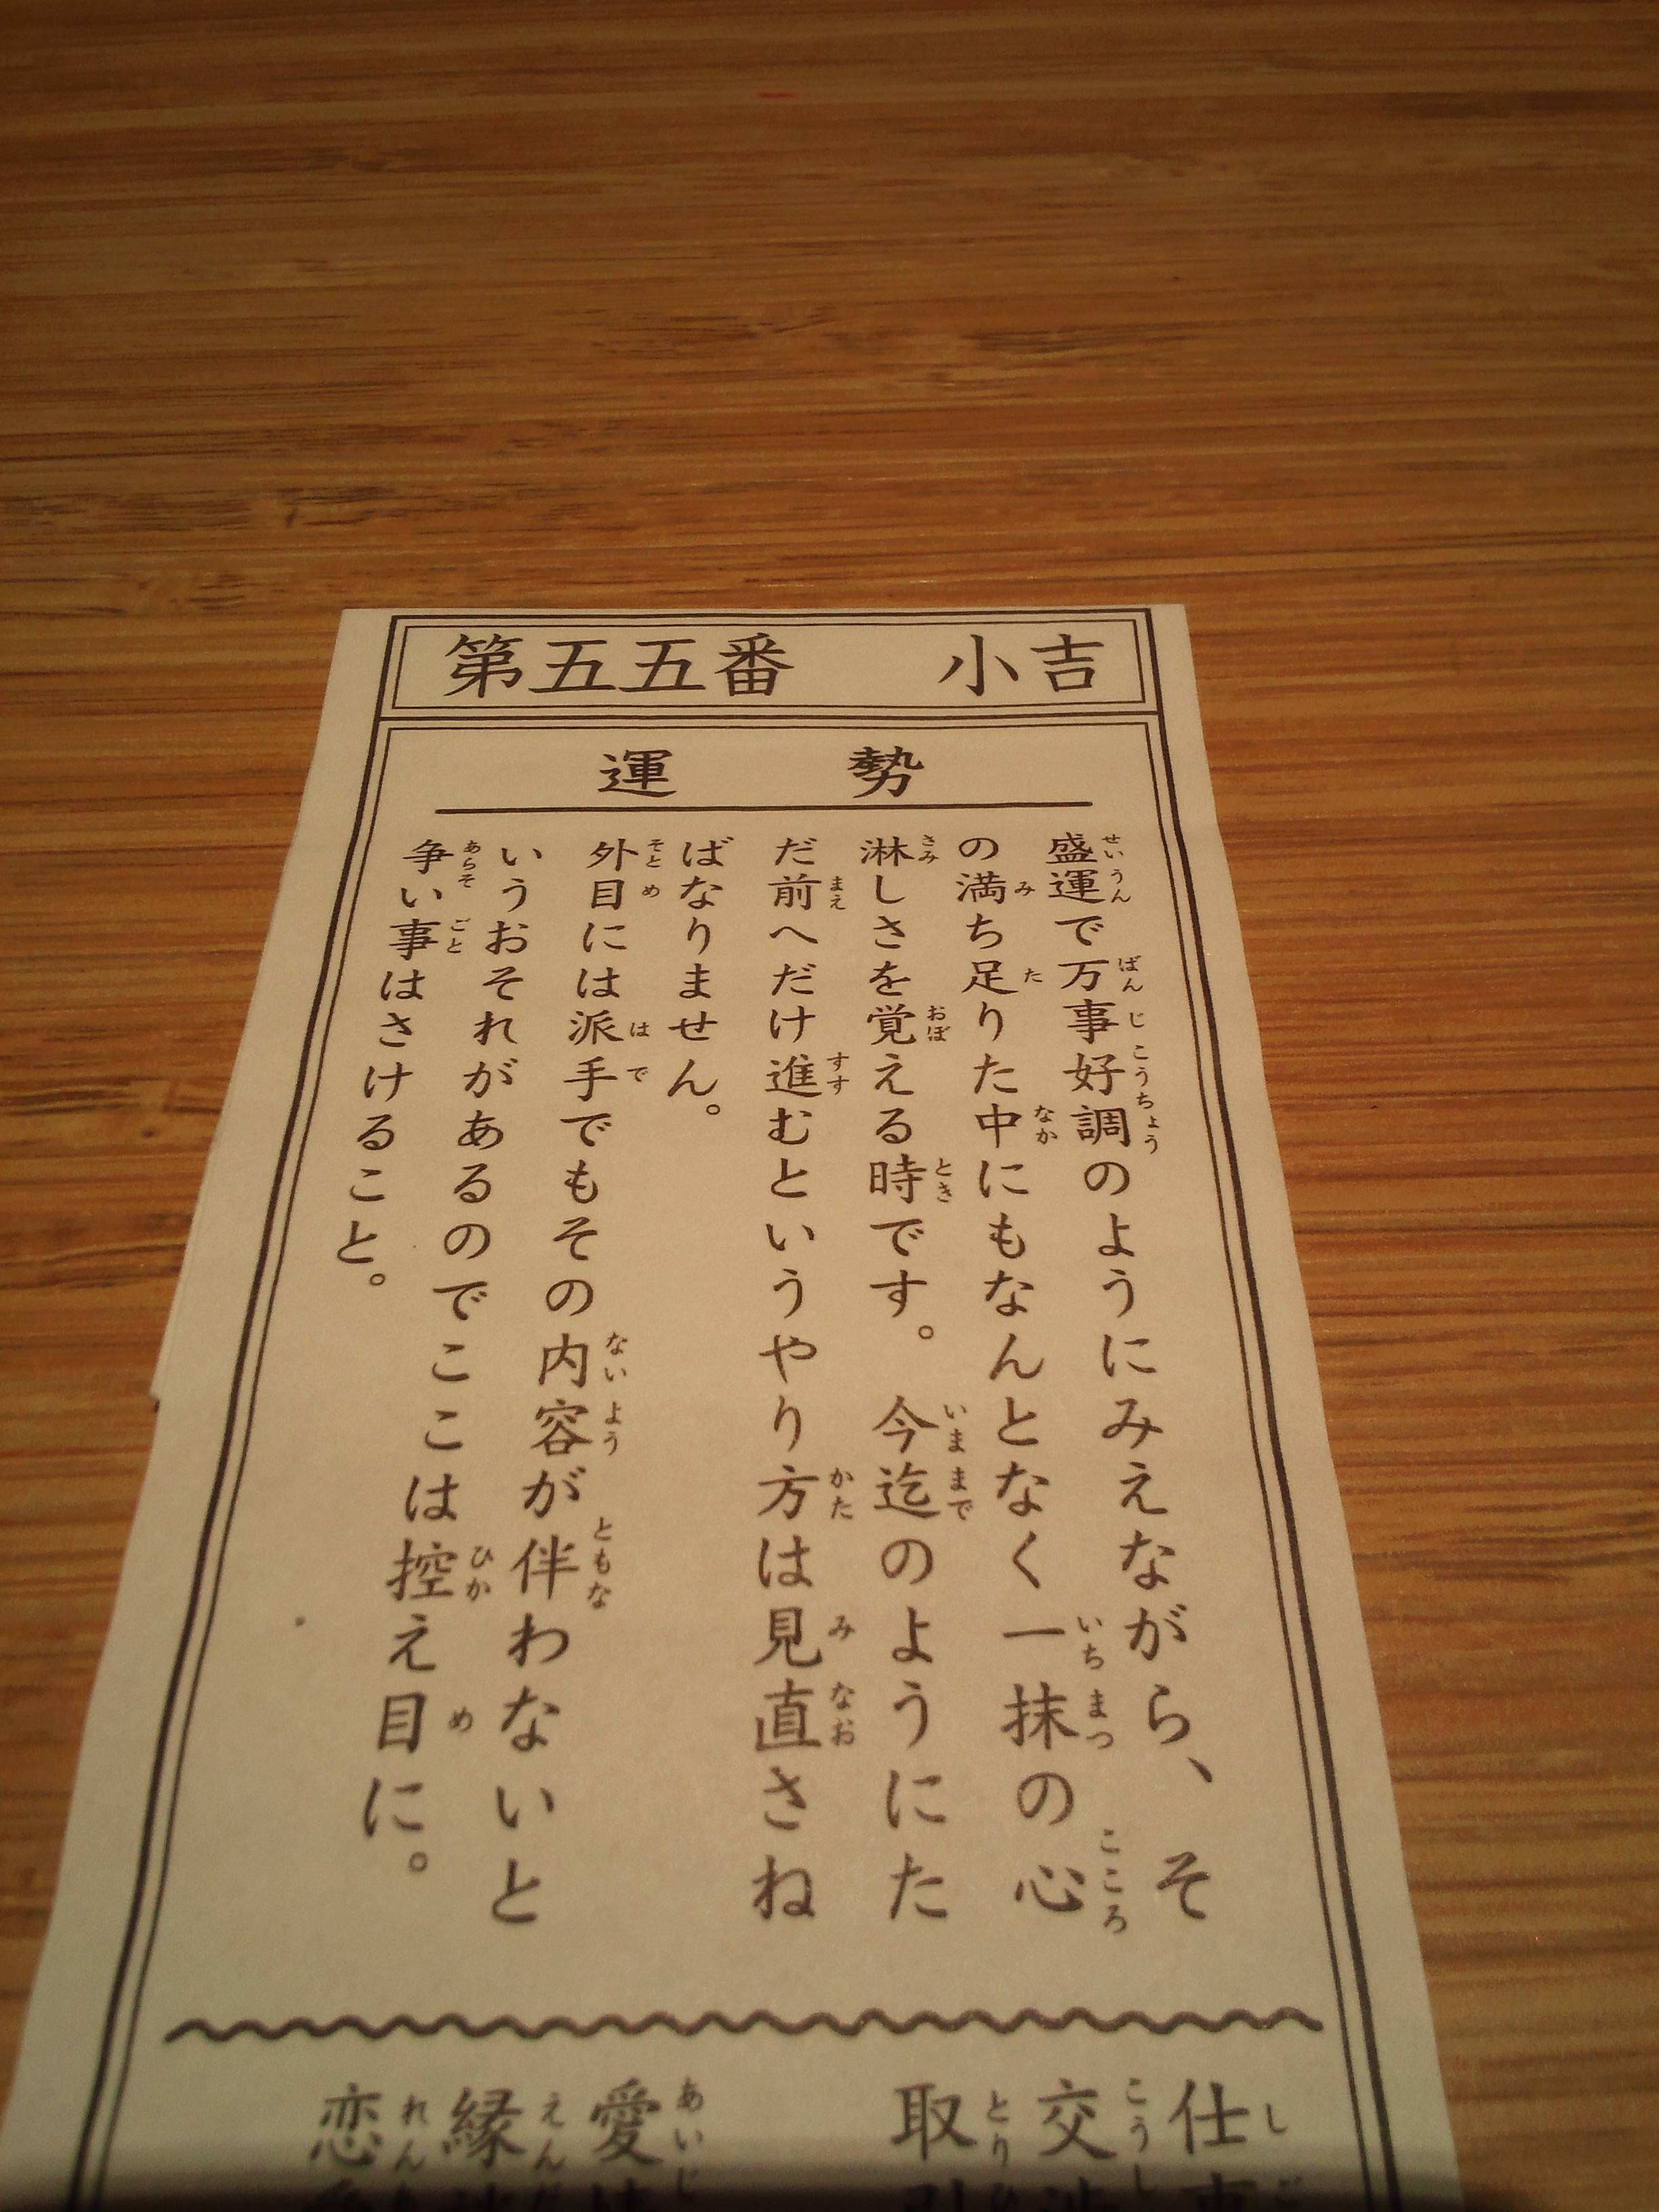 第五五番 小吉
運勢
盛運で万事好調のようにみえながら、そ
の満ち足りた中にもなんとなく一抹の心
淋しさを覚える時です。今迄のようにた
だ前へだけ進むというやり方は見直さね
ばなりません。
外目には派手でもその内容が伴わないと
いうおそれがあるのでここは控え目に。
争い事はさけること。
仕事
交渉
取引
愛情
縁談
恋愛